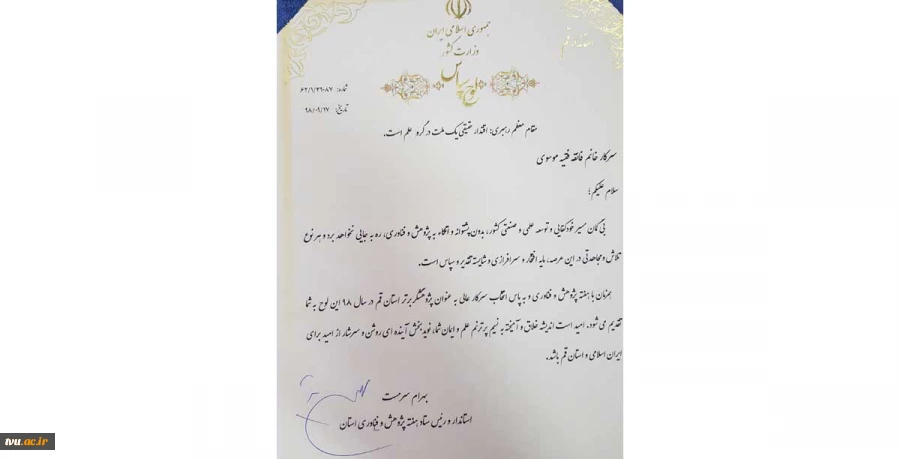 جمهوری اسلامی ایران
وزارت کشور
استانداری قم
لوح سپاس
شماره: ۶۲/۱/۲۶۰۸۷
تاریخ: ۹۸/۰۹/۲۷
مقام معظم رهبری: اقتدار حقیقی یک ملت در گرو علم است.
سرکار خانم فائقه فقیه موسوی
سلام علیکم؛
بی گمان مسیر خودکفایی و توسعه علمی و صنعتی کشور، بدون پشتوانه و اتکاء به پژوهش و فناوری، ره به جایی نخواهد برد و هر نوع
تلاش و مجاهدتی در این عرصه، مایه افتخار و سرافرازی و شایسته تقدیر و سپاس است.
همزمان با هفته پژوهش و فناوری و به پاس انتخاب سرکار عالی به عنوان پژوهشگر برتر استان قم در سال ۹۸ این لوح به شما
تقدیم می شود. امید است اندیشه خلاق و آمیخته به نسیم پرترنم علم و ایمان شما، نویدبخش آینده ای روشن و سرشار از امید برای
ایران اسلامی و استان قم باشد.
بهرام سرمست
استاندار و رئیس ستاد هفته پژوهش و فناوری استان
tvu.ac.ir